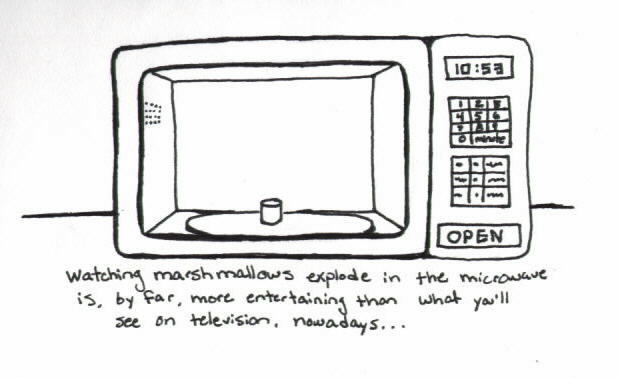 10:53
1 2 3
4 5 6
7 8 9
0 minute
OPEN
Watching marshmallows explode in the microwave
is, by far, more entertaining than what you'll
see on television, nowadays...